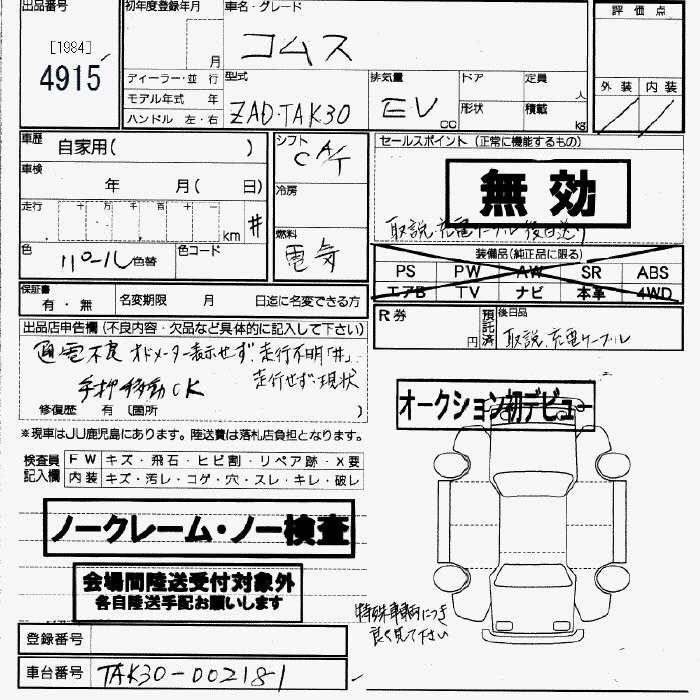 出品番号
[1984]
4915
初年度登録年月
月
ディーラー・並 行
モデル年式 年
ハンドル 左・右
車名・グレード
コムス
型式
ZAD-TAK30
排気量
EV
CC
ドア
形状
定員
人
積載
kg
評 価 点
外 装
内 装
車歴
自家用( )
車検
年 月( 日)
走行
十 万 千 百 十 一
km #
色
パール 色替
色コード
シフト
C A/T
冷房
燃料
電気
セールスポイント (正常に機能するもの)
無 効
取説・充電ケーブル後日送り
装備品(純正品に限る)
PS PW AW SR ABS
エアB TV ナビ 本革 4WD
保証書
有・無
名変期限 月 日迄に名変できる方
R券
円
預託済
後日品
取説・充電ケーブル
出品店申告欄 (不良内容・欠品など具体的に記入して下さい)
通電不良 オドメーター表示せず 走行不明「#」
手押移動OK 走行せず 現状
修復歴 有 〔箇所 )
※現車はJU鹿児島にあります。陸送費は落札店負担となります。
オークション初デビュー
検査員記入欄
FW キズ・飛石・ヒビ割・リペア跡・X要
内装 キズ・汚レ・コゲ・穴・スレ・キレ・破レ
ノークレーム・ノー検査
会場間陸送受付対象外
各自陸送手配お願いします
特殊車輌につき
良く見て下さい
登録番号
車台番号
TAK30-002181